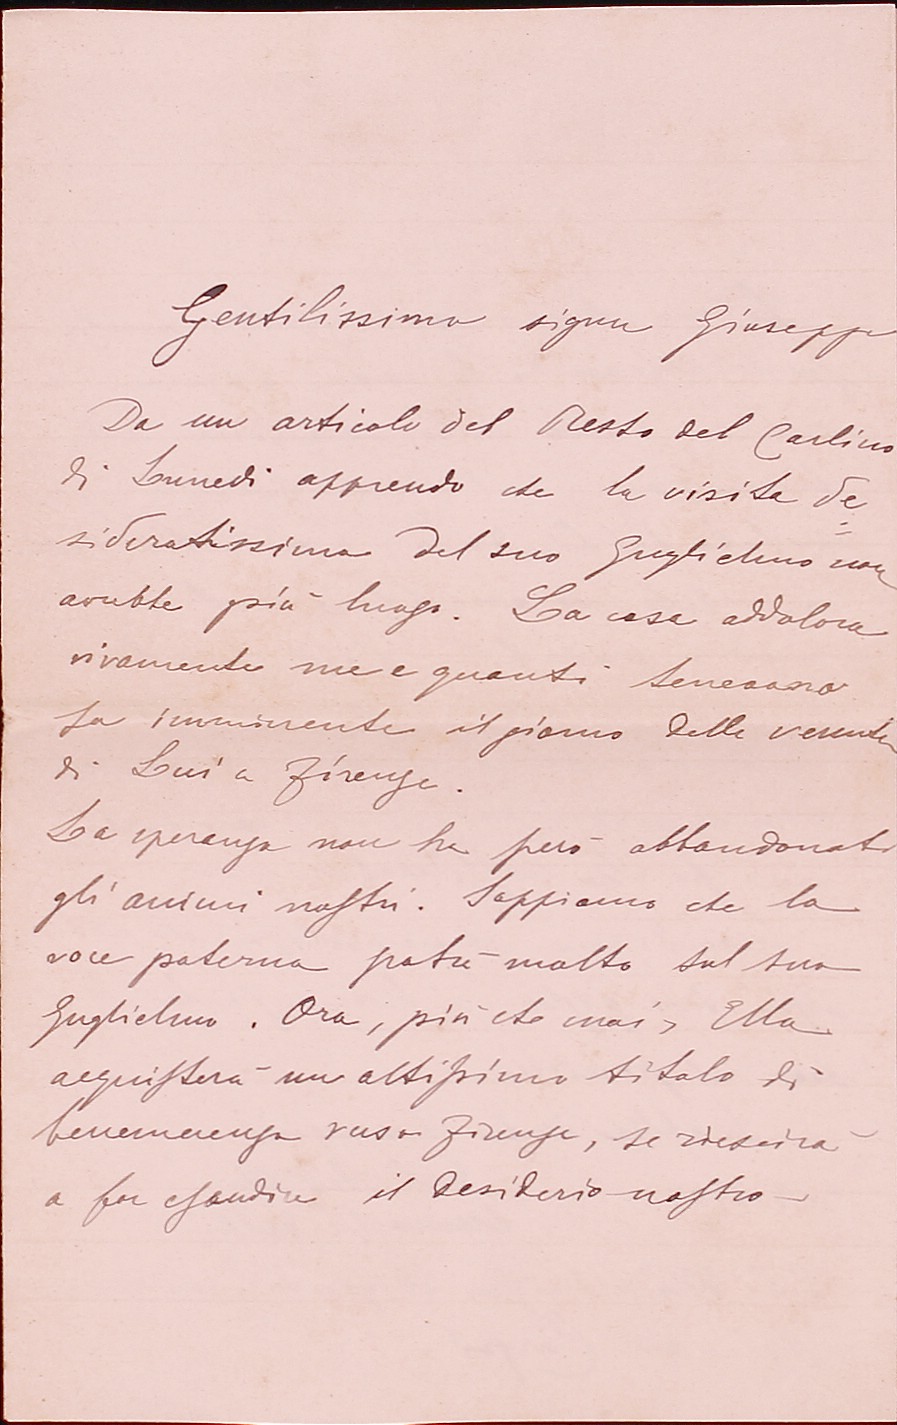 Gentilissimo signor Giuseppe
Da un articolo del Resto del Carlino
di Lunedì apprendo che la visita de=
sideratissima del suo Guglielmo non
avrebbe più luogo. La cosa addolora
vivamente me e quanti tenevano
già imminente il giorno della venuta
di Lui a Firenze.
La speranza non ha però abbandonati
gli animi nostri. Sappiamo che la
voce paterna potrà molto sul suo
Guglielmo. Ora, più che mai, Ella
acquisterà un altissimo titolo di
benemerenza verso Firenze, se riescirà
a far esaudire il desiderio nostro